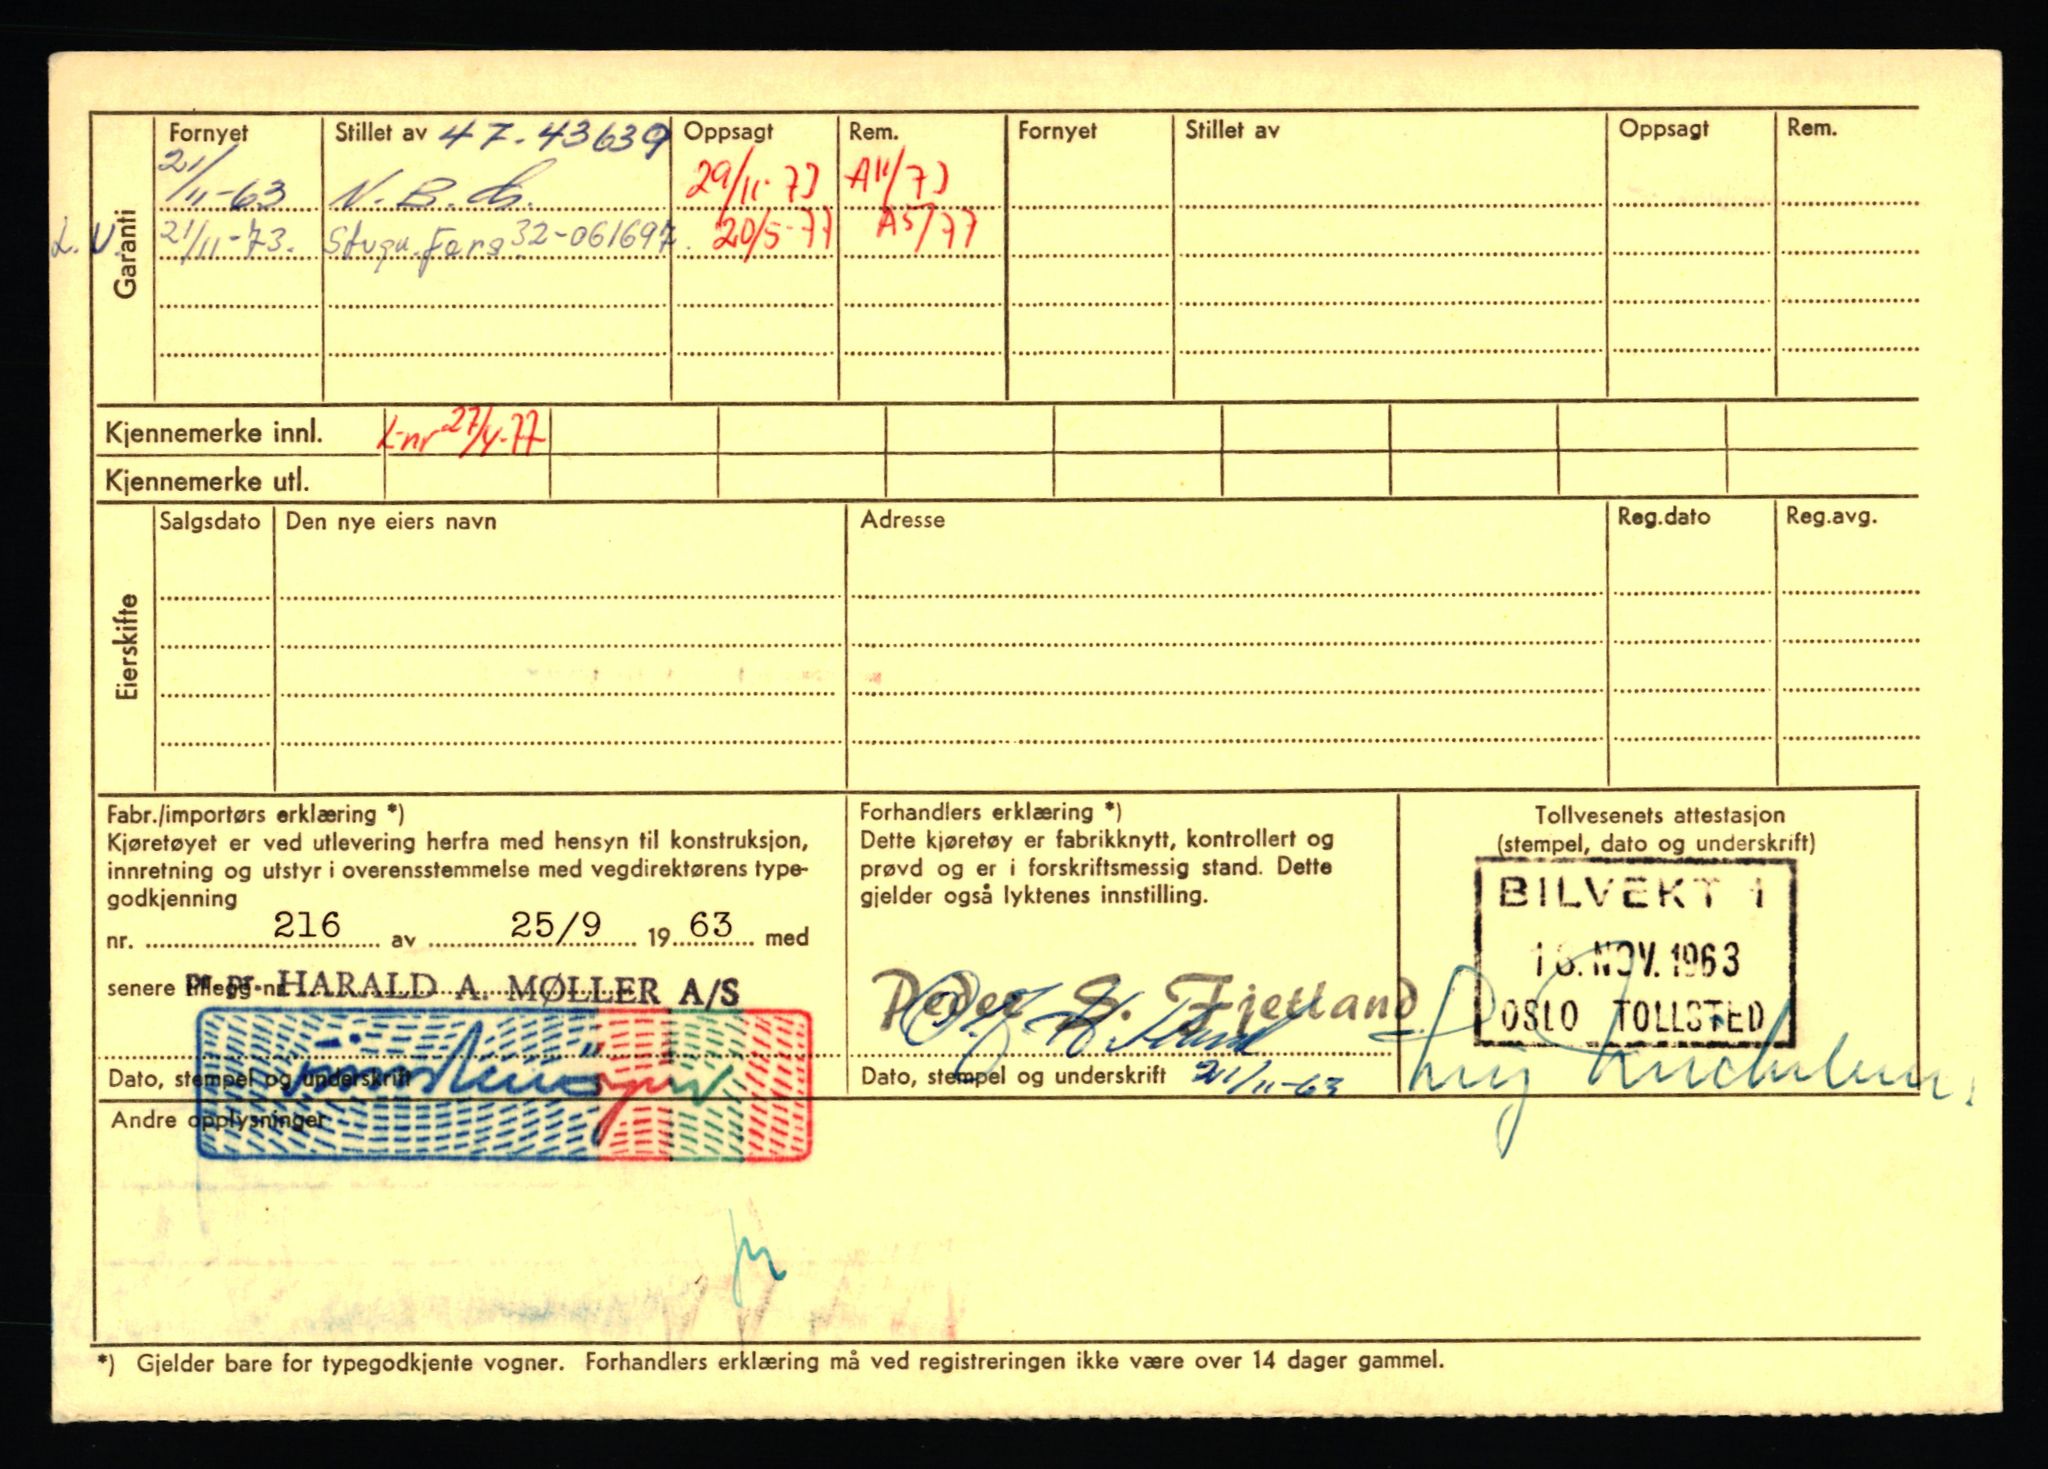 Garanti
Fornyet Stillet av 47.43639 Oppsagt Rem. Fornyet Stillet av Oppsagt Rem.
21/11-63 N.B. 29/11-73 A11/73
L.V. 21/11-73. 32-061697. 20/5-77 A5/77
Kjennemerke innl. L-nr 27/4-77
Kjennemerke utl.
Eierskifte
Salgsdato Den nye eiers navn Adresse Reg.dato Reg.avg.
Fabr./importørs erklæring *)
Kjøretøyet er ved utlevering herfra med hensyn til konstruksjon,
innretning og utstyr i overensstemmelse med vegdirektørens type-
godkjenning
nr. 216 av 25/9 1963 med
senere tillegg nr.
Pr. pr. HARALD A. MØLLER A/S
Dato, stempel og underskrift
Forhandlers erklæring *)
Dette kjøretøy er fabrikknytt, kontrollert og
prøvd og er i forskriftsmessig stand. Dette
gjelder også lyktenes innstilling.
Peder S. Fjetland
Dato, stempel og underskrift 21/11-63
Tollvesenets attestasjon
(stempel, dato og underskrift)
BILVEKT 1
NOV. 1963
OSLO TOLLSTED
Andre opplysninger
*) Gjelder bare for typegodkjente vogner. Forhandlers erklæring må ved registreringen ikke være over 14 dager gammel.